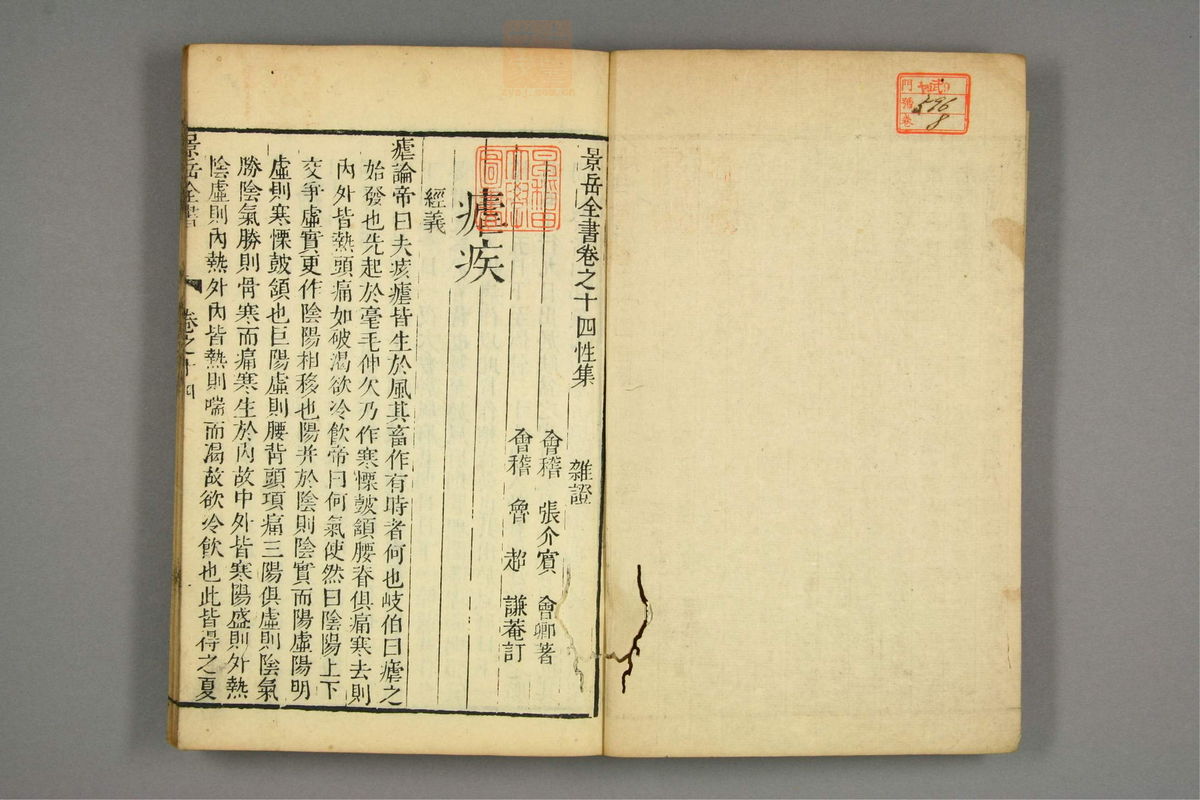 景岳全書卷之十四性集
雜證
會稽 張介賓 會卿著
會稽 魯超 謙菴訂
瘧疾
經義
瘧論帝曰夫痎瘧皆生於風其畜作有時者何也岐伯曰瘧之
始發也先起於毫毛伸欠乃作寒慄鼓頷腰脊俱痛寒去則
內外皆熱頭痛如破渴欲冷飲帝曰何氣使然曰陰陽上下
交爭虛實更作陰陽相移也陽并於陰則陰實而陽虛陽明
虛則寒慄鼓頷也巨陽虛則腰背頭項痛三陽俱虛則陰氣
勝陰氣勝則骨寒而痛寒生於內故中外皆寒陽盛則外熱
陰虛則內熱外內皆熱則喘而渴故欲冷飲也此皆得之夏
景岳全書
卷之十四
門
號
卷
596
8